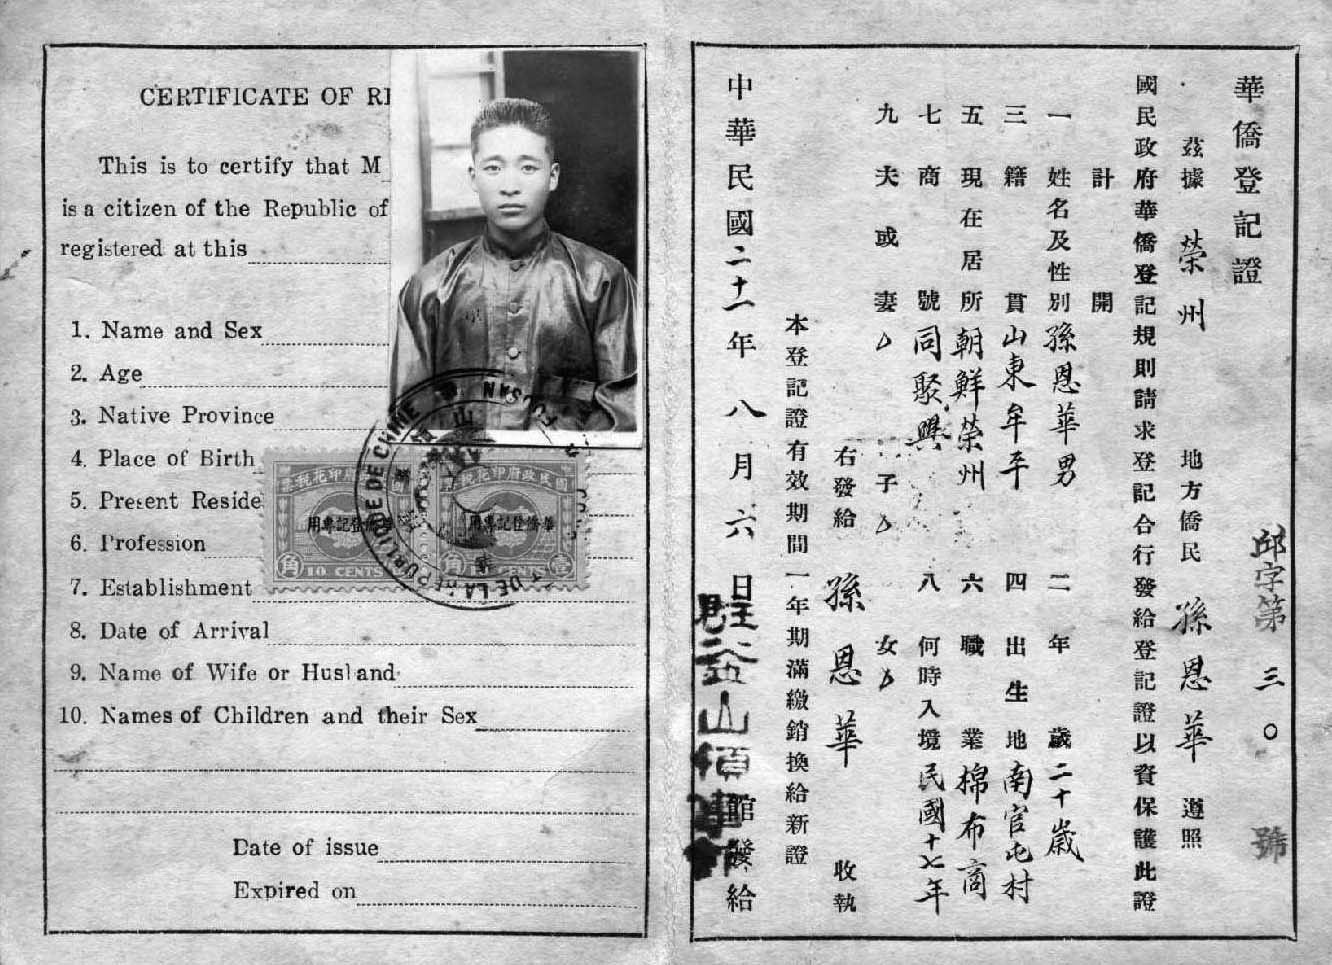 CERTIFICATE OF RE
This is to certify that M
is a citizen of the Republic of
registered at this
1. Name and Sex
2. Age
3. Native Province
4. Place of Birth
5. Present Reside
6. Profession
7. Establishment
8. Date of Arrival
9. Name of Wife or Husband
10. Names of Children and their Sex
Date of issue
Expired on
國民政府印花稅票
華僑登記專用
角 10 CENTS
國民政府印花稅票
華僑登記專用
角 10 CENTS 壹
FOUSAN
REPUBLIQUE DE CHINE
華僑登記證
邱字第三〇號
茲據榮州地方僑民孫恩華遵照
國民政府華僑登記規則請求登記合行發給登記證以資保護此證
計開
一姓名及性別孫恩華男 二年歲二十歲
三籍貫山東牟平 四出生地南官屯村
五現在居所朝鮮榮州 六職業棉布商
七商號同聚興 八何時入境民國十七年
九夫或妻 子 女
右發給孫恩華收執
本登記證有效期間一年期滿繳銷換給新證
中華民國二十一年八月六日駐釜山領事館發給